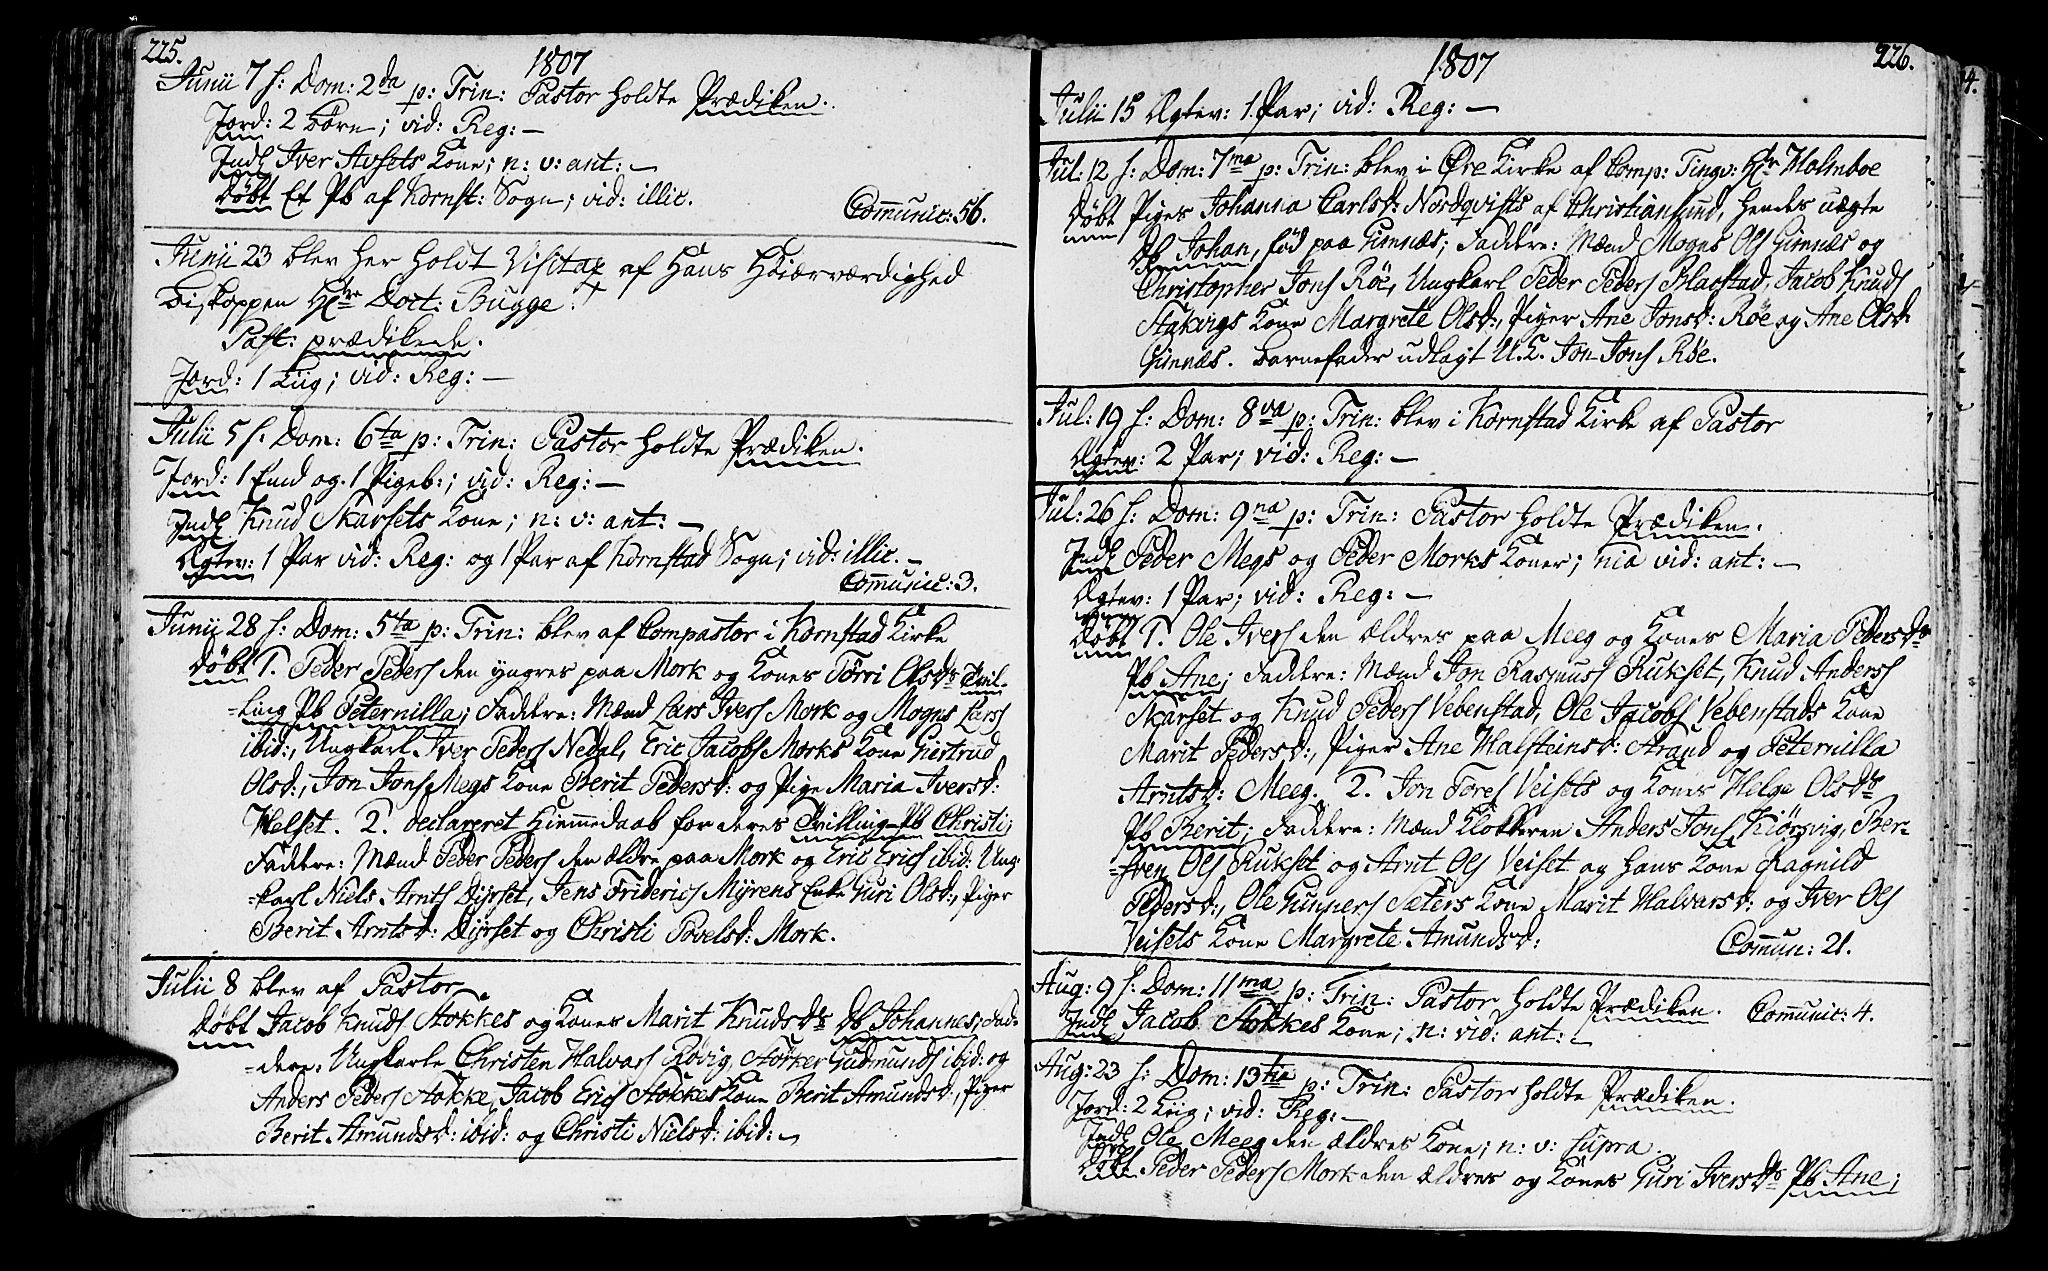 225.
1807
Junii 7 s: Dom: 2da p: Trin: Pastor holdte Prædiken.
Jord: 2 Børn; vid: Reg: —
Indl Iver Avsets Kone; n: v: ant: —
Døbt Et Pb af Kornst: Sogn; vid: illic.
Communic: 56.
Junii 23 blev her holdt Visitaz af Hans Høiærværdighed
Biskoppen Hre Doct: Bugge. †
Past: prædikede.
Jord: 1 Liig; vid: Reg: —
Julii 5 s: Dom: 6ta p: Trin: Pastor holdte Prædiken.
Jord: 1 Smd og 1 Pigeb:; vid: Reg: —
Indl Knud Skarsets Kone; n: v: ant: —
Ægtev: 1 Par vid: Reg: og 1 Par af Kornstad Sogn; vid: illic. —
Communic: 3.
Junii 28 s: Dom: 5ta p: Trin: blev af Compastor i Kornstad Kirke
Døbt 1. Peder Peders den yngres paa Mork og Kones Törri Olsds Tvil-
-ling Pb Peternilla; Faddere: Mænd Lars Ivers Mork og Mogns Lars
ibid:, Ungkarl Iver Peders Nedal, Eric Jacobs Morks Kone Giertrud
Olsd:, Jon Jons Megs Kone Berit Pedersd: og Pige Maria Iversd:
Helset. 2. declareret Hiemmedaab for deres Tvilling-Pb Christi;
Faddere: Mænd Peder Peders den ældre paa Mork og Eric Erics ibid: Ung-
-karl Niels Arnts Dyrset, Jens Friderics Myrens Enke Guri Olsd:, Piger
Berit Arntsd: Dyrset og Christi Povelsd: Mork.
Julii 8 blev af Pastor
Døbt Jacob Knuds Stokkes og Kones Marit Knudsds Db Johannes; Fad-
-dere: Ungkarle Christen Halvars Røvig, Störker Gudmunds ibid: og
Anders Peders Stokke, Jacob Erics Stokkes Kone Berit Amundsd:, Piger
Berit Amundsd: ibid: og Christi Nielsd: ibid: —
1807
226.
Julii 15 Ægtev: 1. Par; vid: Reg: —
Jul: 12 s: Dom: 7ma p: Trin: blev i Øre Kirke af Comp: Tingv: Hr Holmboe
Døbt Piges Johanna Carlsd: Nordqvists af Christiansund, hendes uægte
Db Johan, fød paa Gimnæs; Faddere: Mænd Mogns Ols Gimnæs og
Christopher Jons Röe, Ungkarl Peder Peders Blacstad, Jacob Knuds
Stakvigs Kone Margrete Olsd:, Piger Ane Jonsd: Röe og Ane Olsd:
Gimnæs. Barnefader udlagt U. K. Jon Jons Röe.
Jul: 19 s: Dom: 8va p: Trin: blev i Kornstad Kirke af Pastor
Ægtev: 2 Par; vid: Reg: —
Jul: 26 s: Dom: 9na p: Trin: Pastor holdte Prædiken.
Indl Peder Megs og Peder Morks Koner; nia vid: ant: —
Ægtev: 1 Par; vid: Reg: —
Døbt 1. Ole Ivers den ældres paa Meeg og Kones Maria Pedersds
Pb Ane; Faddere: Mænd Jon Rasmuss Rukset, Knud Anders
Skarset og Knud Peders Vebenstad, Ole Jacobs Vebenstads Kone
Marit Pedersd:, Piger Ane Halsteinsd: Strand og Peternilla
Arntsd: Meeg. 2. Jon Tores Veisets og Kones Helge Olsds
Pb Berit; Faddere: Mænd Klokkeren Anders Jons Kiörsvig, Ber-
-sven Ols Rukset og Arnt Ols Veiset og hans Kone Ragnild
Pedersd:, Ole Gunners Sæters Kone Marit Halvarsd: og Iver Ols
Veisets Kone Margrete Amundsd:
Commun: 21.
Aug: 9 s: Dom: 11ma p: Trin: Pastor holdte Prædiken. Communic: 4.
Indl Jacob Stokkes Kone; n: vid: ant: —
Aug: 23 s: Dom: 13tia p: Trin: Pastor holdte Prædiken.
Jord: 2 Liig; vid: Reg: —
Indl Ole Meeg den ældres Kone; n: v: supra.
Døbt Peder Peders Mork den ældres og Kones Guri Iversds Pb Ane;